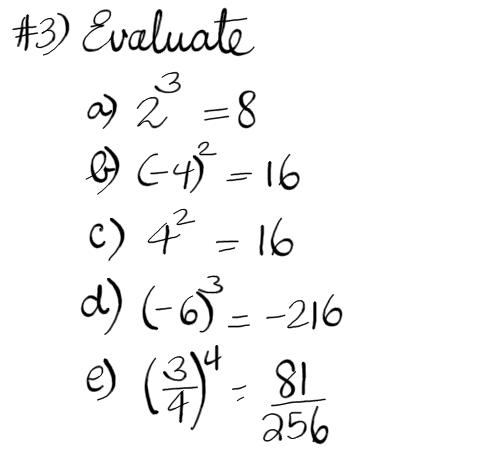 #3) Evaluate
a) 2³ = 8
b) (-4)² = 16
c) 4² = 16
d) (-6)³ = -216
e) (3/4)⁴ = 81/256